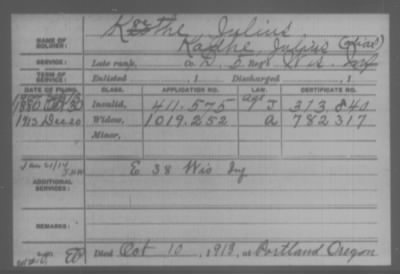 NAME OF SOLDIER: Koethe, Julius
Kadhe, Julius (alias)
SERVICE: Late rank, Co. A, 5 Reg't U.S. Inf
TERM OF SERVICE: Enlisted , 1 Discharged , 1
DATE OF FILING. CLASS. APPLICATION NO. LAW. CERTIFICATE NO.
1880 Invalid, 411.575 J 313.840
1913 Dec 20 Widow, 1019.252 A 782317
Minor,
Jan 21/14
ADDITIONAL SERVICES: E 38 Wis Inf
REMARKS:
Died Oct 10, 1913, at Portland Oregon